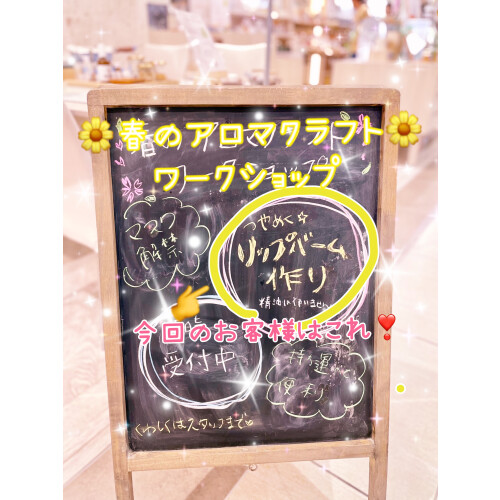 春のアロマクラフト
ワークショップ
マスク
解禁
つやめく☆
リップバーム
作り
精油は使いません
今回のお客様はこれ❣
受付中
持ち運び
便利
くわしくはスタッフまで